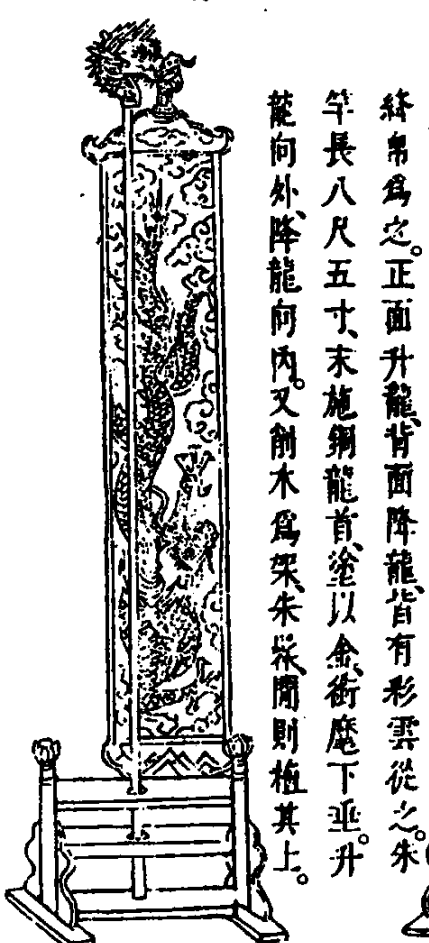 絳帛爲之。正面升龍、背面降龍、皆有彩雲從之。朱
竿長八尺五寸、末施銅龍首、塗以金、銜麾下垂。升
龍向外、降龍向內。又削木爲架、朱漆、閒則植其上。